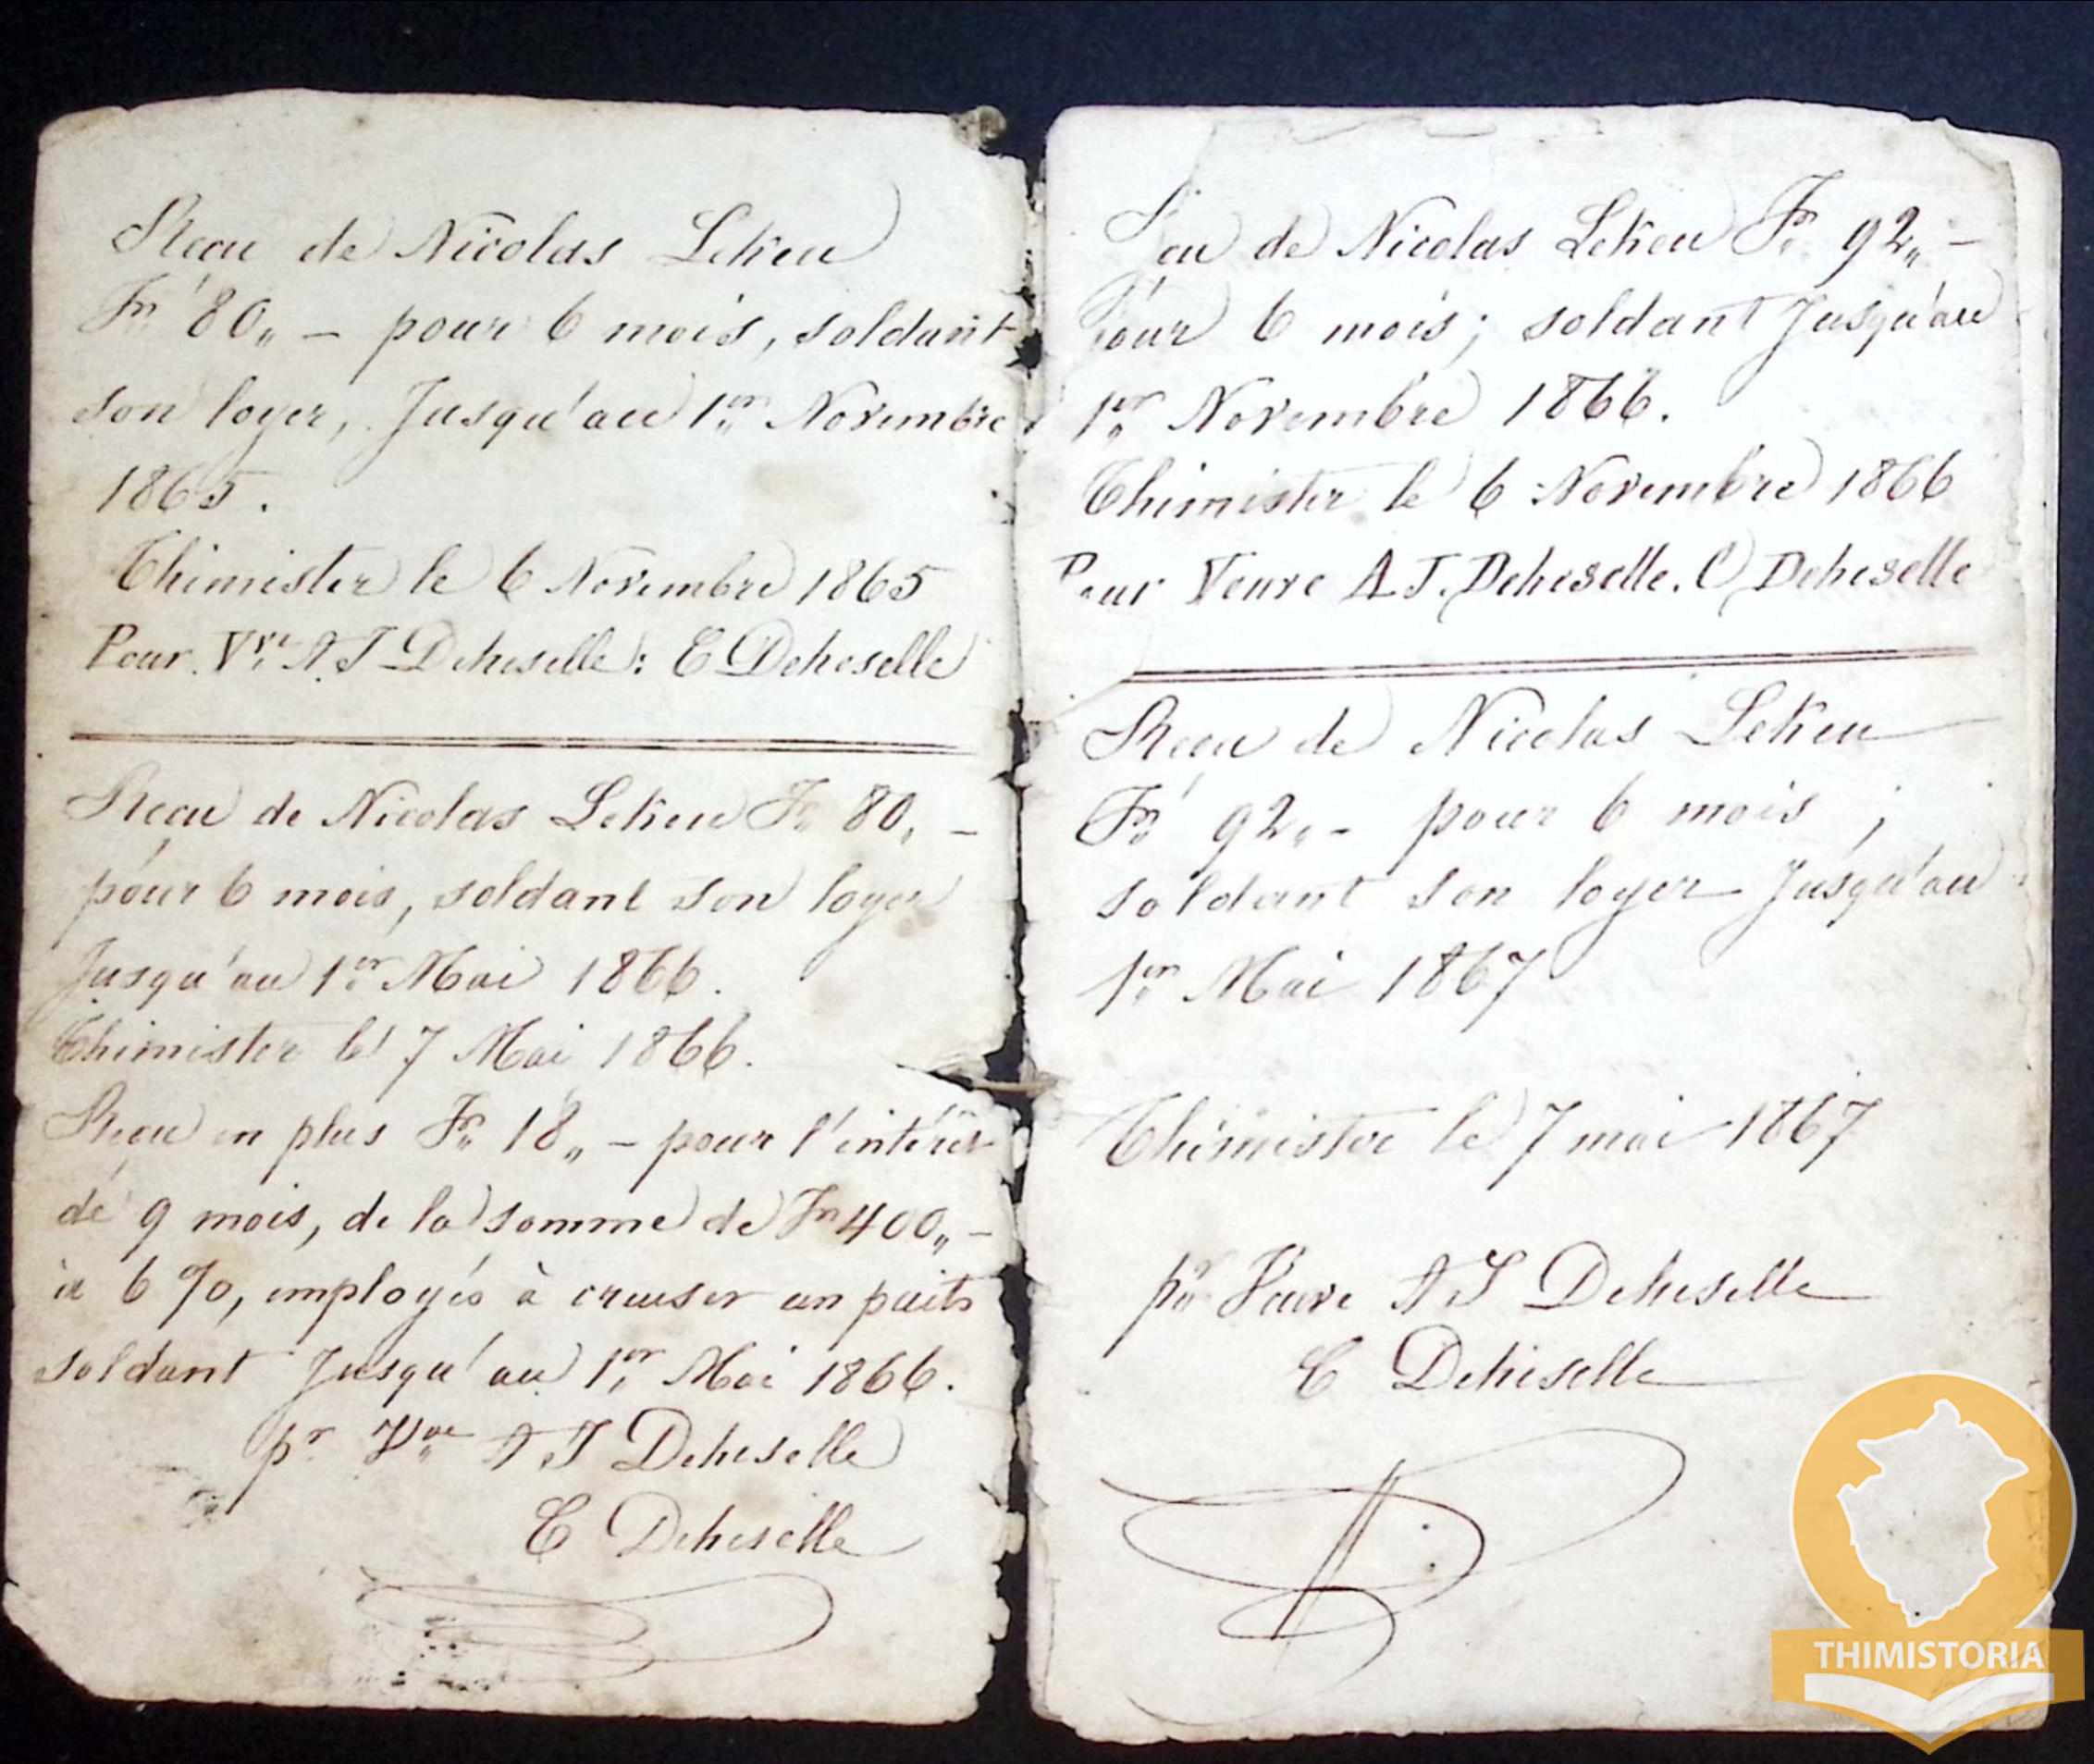 Reçu de Nicolas Lekeu
Fr 80,, – pour 6 mois, soldant
son loyer, Jusqu'au 1er Novembre
1865.
Thimister le 6 Novembre 1865
Pour Vve A J Deheselle: E Deheselle
Reçu de Nicolas Lekeu Fr 80,, –
pour 6 mois, soldant son loyer
Jusqu'au 1er Mai 1866.
Thimister le 7 Mai 1866.
Reçu en plus Fr 18,, – pour l'intérêt
de 9 mois, de la somme de Fr 400,, –
à 6 %, employés à creuser un puits
soldant Jusqu'au 1er Mai 1866.
pr Vve A J Deheselle
E Deheselle
çu de Nicolas Lekeu Fr 92,, –
Pour 6 mois; soldant Jusqu'au
1er Novembre 1866.
Thimister le 6 Novembre 1866
Pour Veuve A J. Deheselle. E Deheselle
Reçu de Nicolas Lekeu
Fr 92,, – pour 6 mois;
soldant son loyer Jusqu'au
1er Mai 1867
Thimister le 7 mai 1867
pr Veuve A J Deheselle
E Deheselle
THIMISTORIA